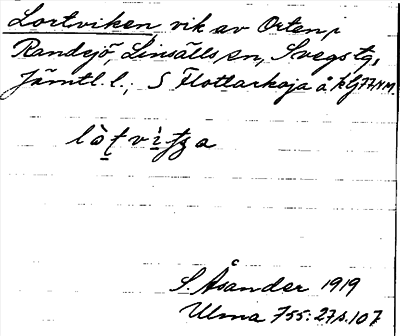 Lortviken vik av Orten,
Randsjö, Linsälls sn, Svegs tg,
Jämtl. l., S Flottarkoja å kbl 77 NM.
S. Åsander 1919
Ulma 755: 27 s. 107